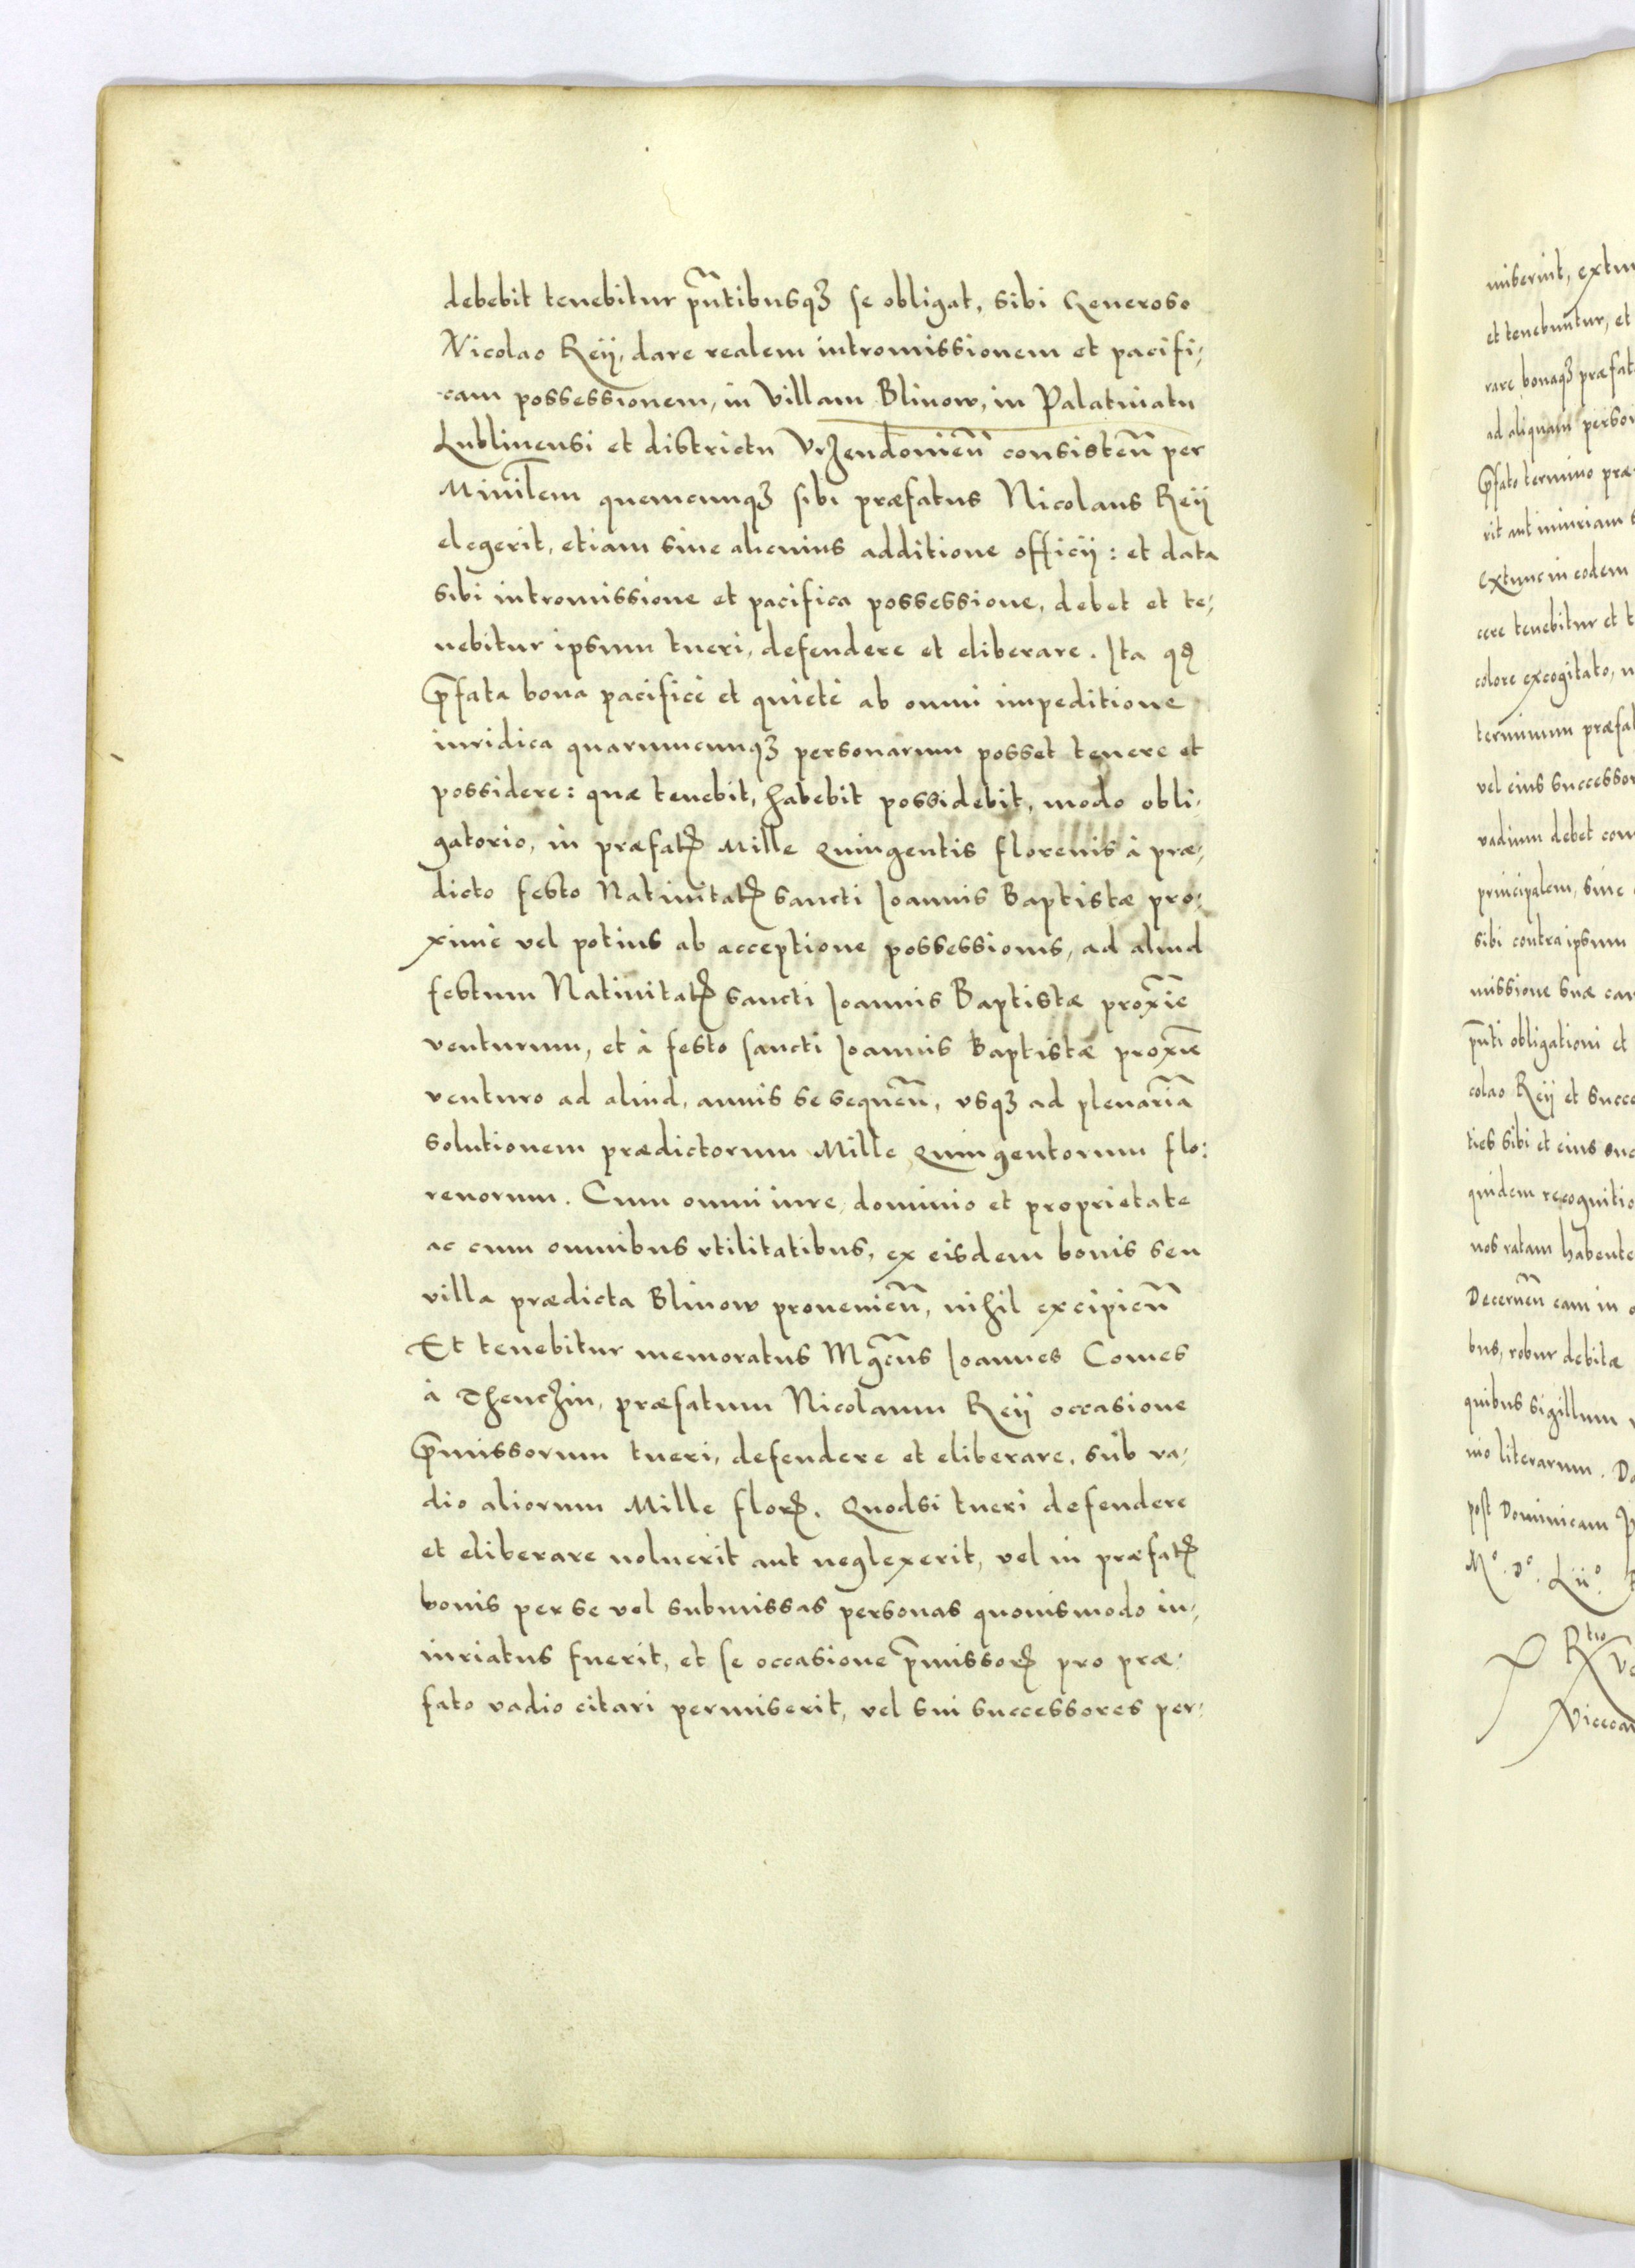 debebit tenebitur pñtibusqȝ se obligat, sibi Generoso
Nicolao Reÿ, dare realem intromissionem et pacifi-
cam possessionem, in Villam Blinow, in Palatinatu
Lublinensi et districtu Vrzendowien̄ consisten̄ per
Minilem quemcunqȝ sibi præfatus Nicolaus Reÿ
elegerit, etiam sine alicuius additione officij: et data
sibi intromissione et pacifica possessione, debet et te-
nebitur ipsum tueri, defendere et eliberare. Ita qđ
p̄fata bona pacificè et quietè ab omni impeditione
iuridica quarumcunqȝ personarum posset tenere et
possidere: quæ tenebit, habebit possidebit, modo obli-
gatorio, in præfatꝭ Mille Quingentis florenis à præ-
dicto festo Natiuitatꝭ sancti Joannis Baptistæ pro-
ximè vel potius ab acceptione possessionis, ad aliud
festum Natiuitatꝭ sancti Joannis Baptistæ prox̄ie
venturum, et à festo sancti Joannis Baptistæ prox̄ie
venturo ad aliud, annis se sequen̄, vsqȝ ad plenariā
solutionem prædictorum Mille Quingentorum flo-
renorum. Cum omni iure, dominio et proprietate
ac cum omnibus vtilitatibus, ex eisdem bonis seu
villa prædicta Blinow prouenien̄, nihil excipien̄
Et tenebitur memoratus Mgc̄us Joannes Comes
à Thenczin, præfatum Nicolaum Reÿ occasione
p̄missorum tueri, defendere et eliberare, sub va-
dio aliorum Mille florꝭ. Quodsi tueri defendere
et eliberare noluerit aut neglexerit, vel in præfatꝭ
bonis per se vel submissas personas quouismodo in-
iuriatus fuerit, et se occasione p̄missorꝭ pro præ-
fato vadio citari permiserit, vel sui successores per-
miserint, extun
et tenebuntur, et
rare bonaqȝ præfat
ad aliquam person
p̄fato termino præ
rit aut iniuriam
Extunc in eodem
cere tenebitur et t
colore excogitato, n
terminum præfat
vel eius successor
vadium debet com
principalem, sine
sibi contra ipsum
missione suæ cau
pñti obligationi et
colao Reÿ et succe
ties sibi et eius suc
quidem recognitio
nos ratam habente
Decernen̄ eam in o
bus, robur debitæ
quibus sigillum
nio literarum. Da
post Dominicam
Mº. Dº. Lijº.
Vicecan